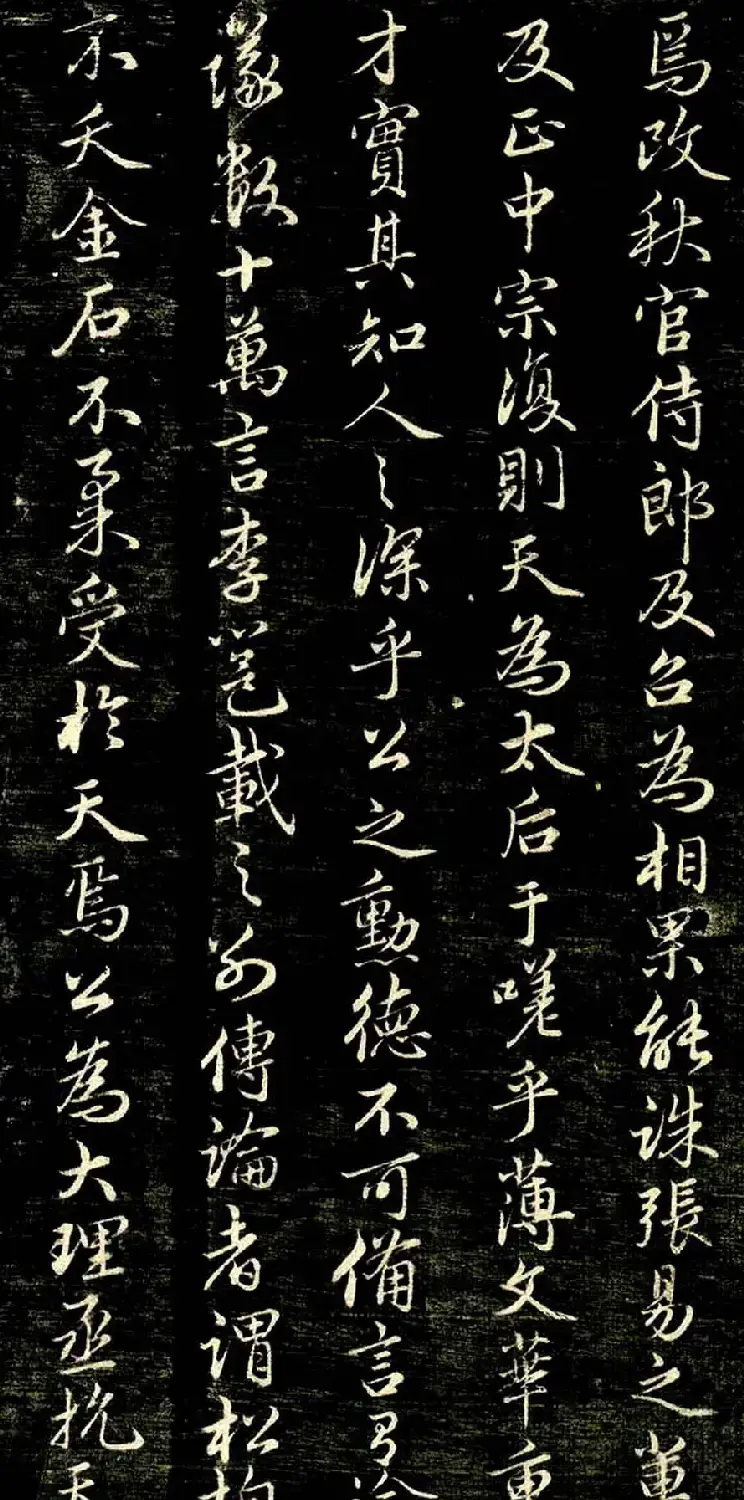 焉改秋官侍郎及召為相果能誅張易之輩
及正中宗復則天為太后于嗟乎薄文華重
才實其知人之深乎公之勳德不可備言有論
議數十萬言李邕載之別傳論者謂松柏
不夭金石不柔受於天焉公為大理丞抗天